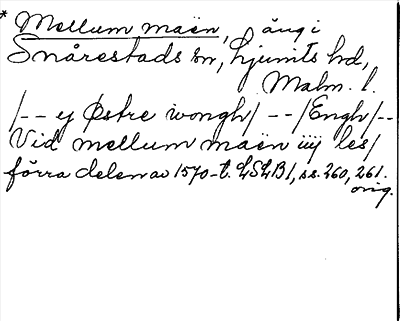 * Mellum maën, äng i
Snårestads sn, Ljunits hd,
Malm. l.
/-- y Østre wongh/ --/Engh/--
Vid mellum maën iiij les/
förra delen av 1570-t. LSLB1, ss. 260, 261.
orig.